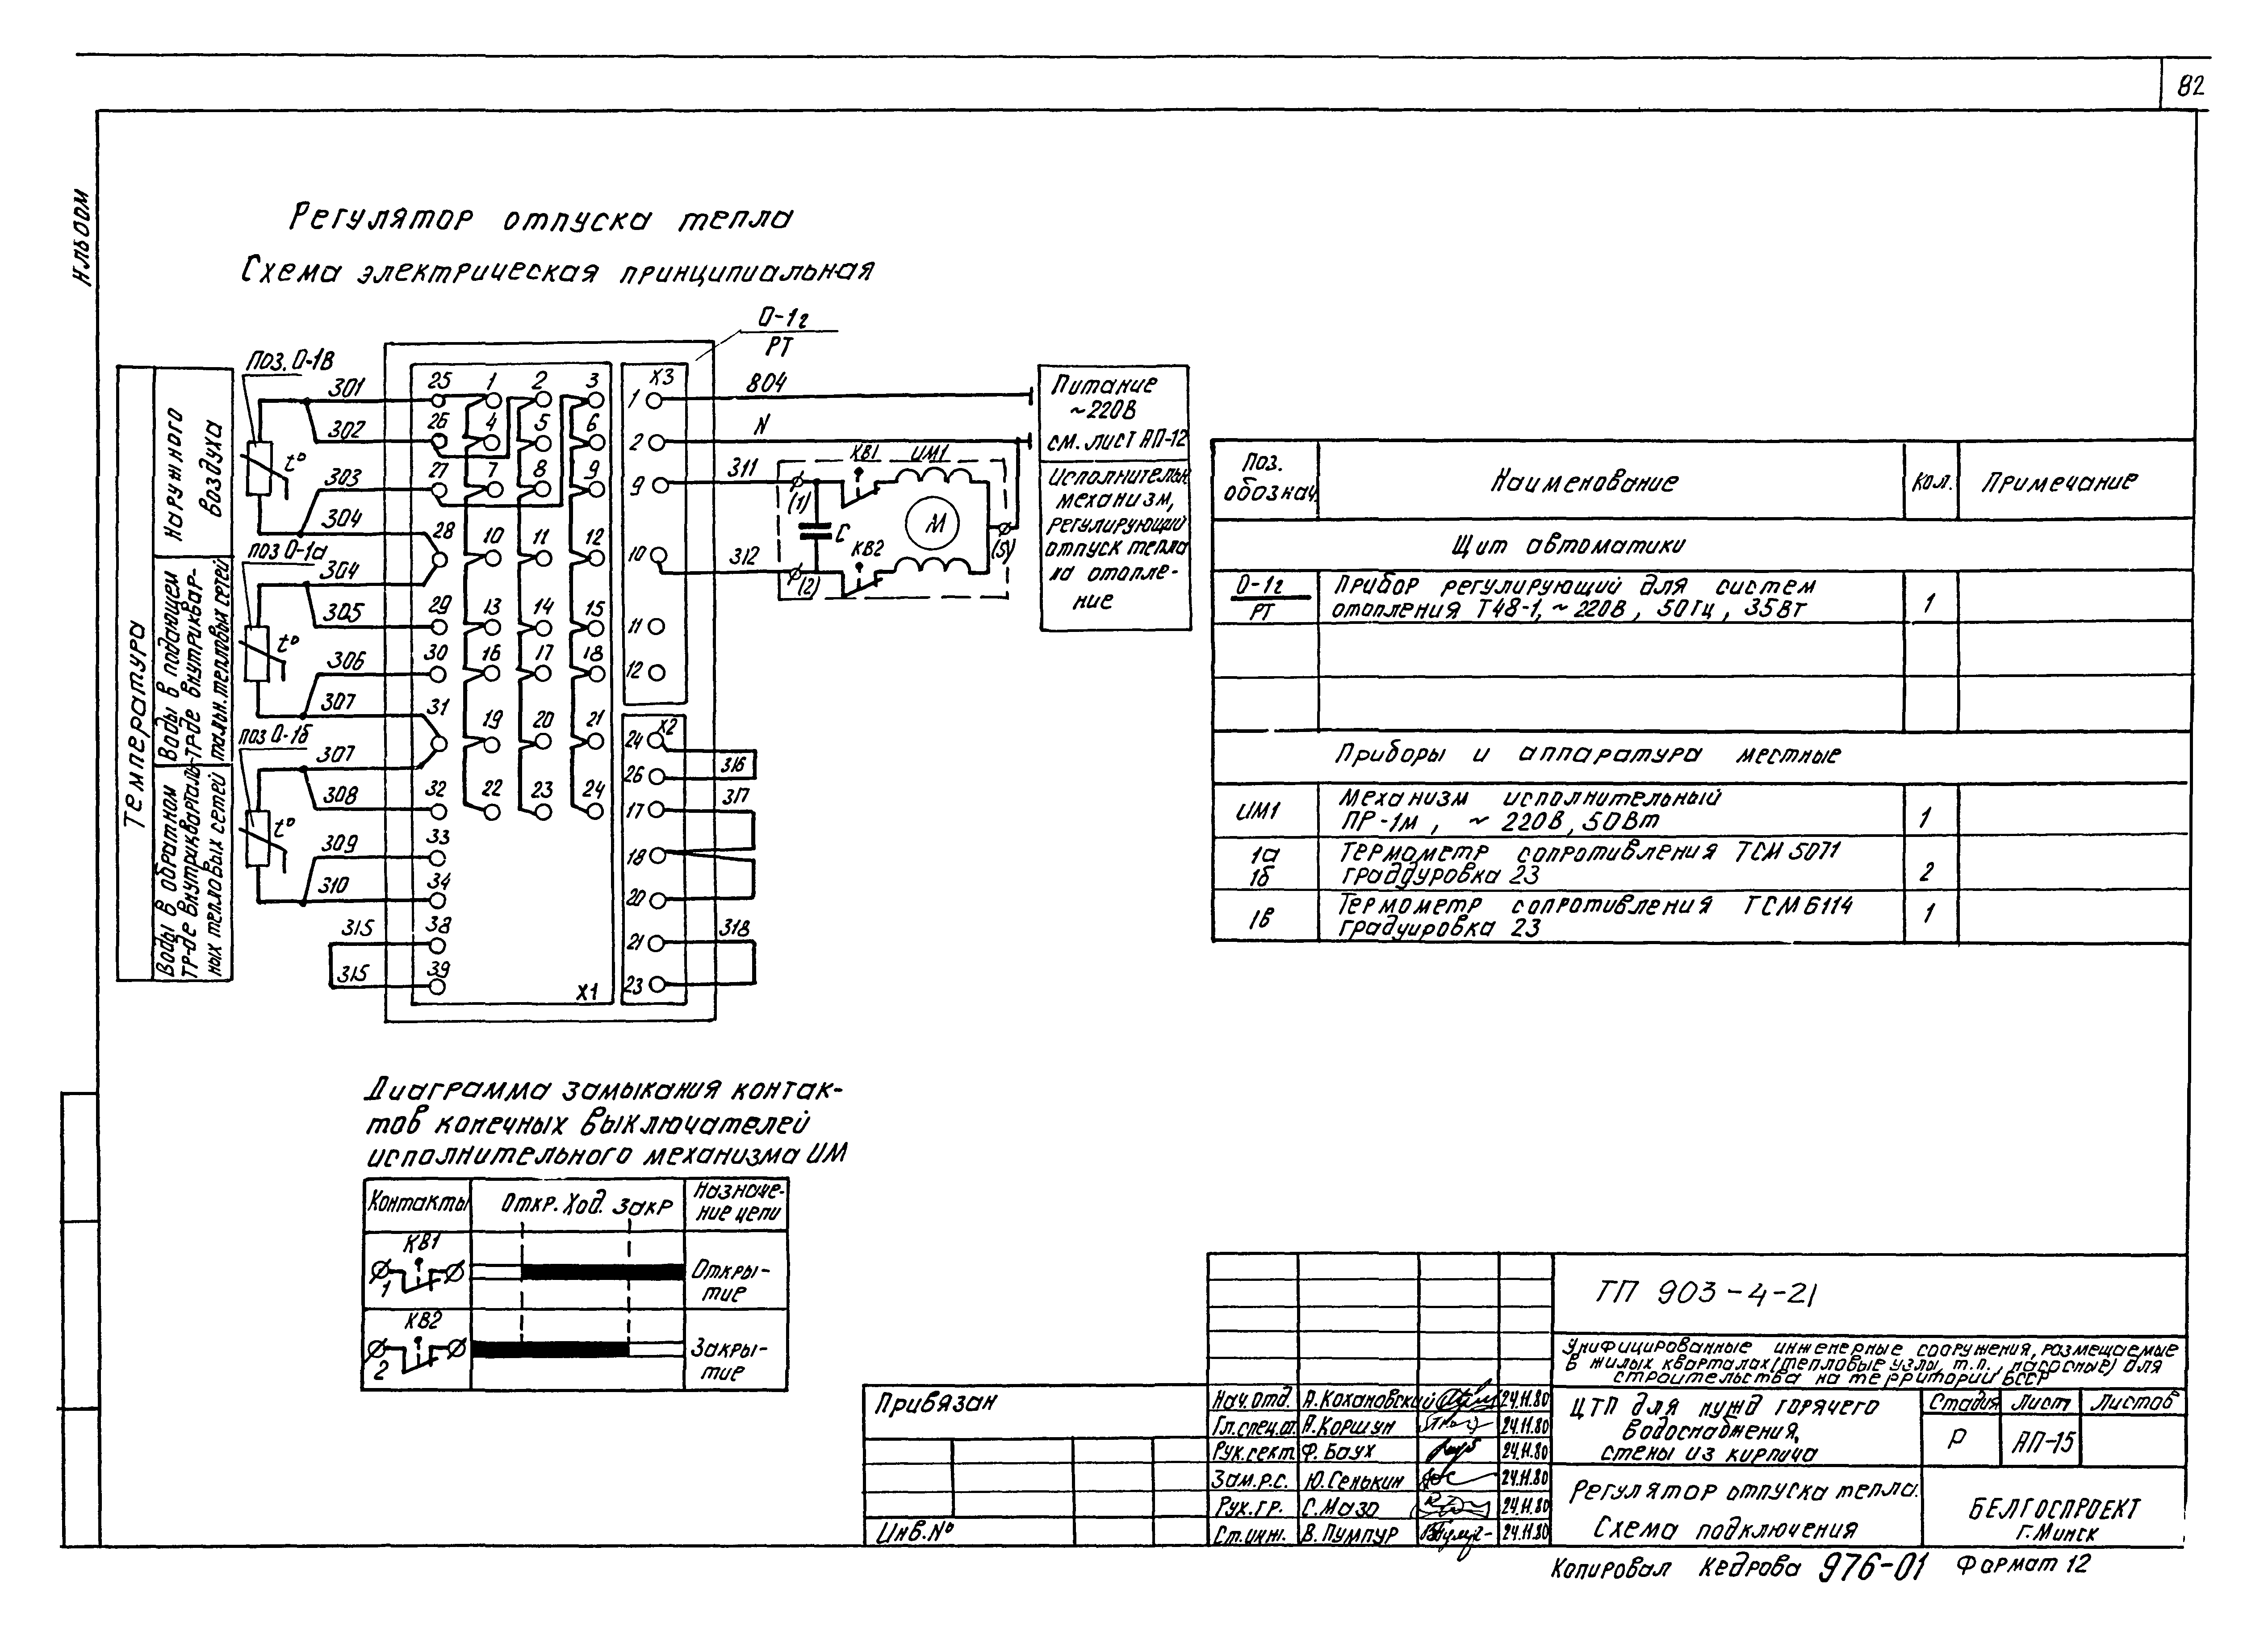 82
Альбом
Регулятор отпуска тепла
Схема электрическая принципиальная
0-1г
РТ
Температура
Наружного
воздуха
Воды в подающем
тр-де внутриквар-
тальн. тепловых сетей
Воды в обратном
тр-де внутрикварталь-
ных тепловых сетей
поз. 0-1в
t°
поз 0-1а
t°
поз 0-1б
t°
301
302
303
304
304
305
306
307
307
308
309
310
315
315
25 1 2 3
26 4 5 6
27 7 8 9
28 10 11 12
29 13 14 15
30 16 17 18
31 19 20 21
32 22 23 24
33
34
38
39
X1
X3
1
2
9
10
11
12
X2
24
26
17
18
20
21
23
316
317
318
804
N
311
312
КВ1 ИМ1
(1)
С
М
(5)
КВ2
(2)
Питание
~220В
см. лист АП-12
Исполнительн.
механизм,
регулирующий
отпуск тепла
на отопле-
ние
Поз.
обознач.
Наименование
Кол.
Примечание
Щит автоматики
0-1г
РТ
Прибор регулирующий для систем
отопления Т48-1, ~ 220В, 50Гц, 35Вт
1
Приборы и аппаратура местные
ИМ1
Механизм исполнительный
ПР-1м, ~ 220В, 50Вт
1
1а
1б
Термометр сопротивления ТСМ 5071
граддуровка 23
2
1в
Термометр сопротивления ТСМ 6114
градуировка 23
1
Диаграмма замыкания контак-
тов конечных выключателей
исполнительного механизма ИМ
Контакты
Откр. Ход. Закр
Назначе-
ние цепи
КВ1
1
Откры-
тие
КВ2
2
Закры-
тие
ТП 903-4-21
Унифицированные инженерные сооружения, размещаемые
в жилых кварталах (тепловые узлы, т.п., насосные) для
строительства на территории БССР
ЦТП для нужд горячего
водоснабжения,
стены из кирпича
Стадия Лист Листов
Р АП-15
Регулятор отпуска тепла.
Схема подключения
БЕЛГОСПРОЕКТ
г. Минск
Привязан
Инв. №
Нач. отд. А. Кохановский 24.11.80
Гл. спец. от. А. Коршун 24.11.80
Рук. сект. Ф. Баух 24.11.80
Зам. р.с. Ю. Сенькин 24.11.80
Рук. гр. С. Мазо 24.11.80
Ст. инж. В. Пумпур 24.11.80
Копировал Кедрова 976-01 Формат 12